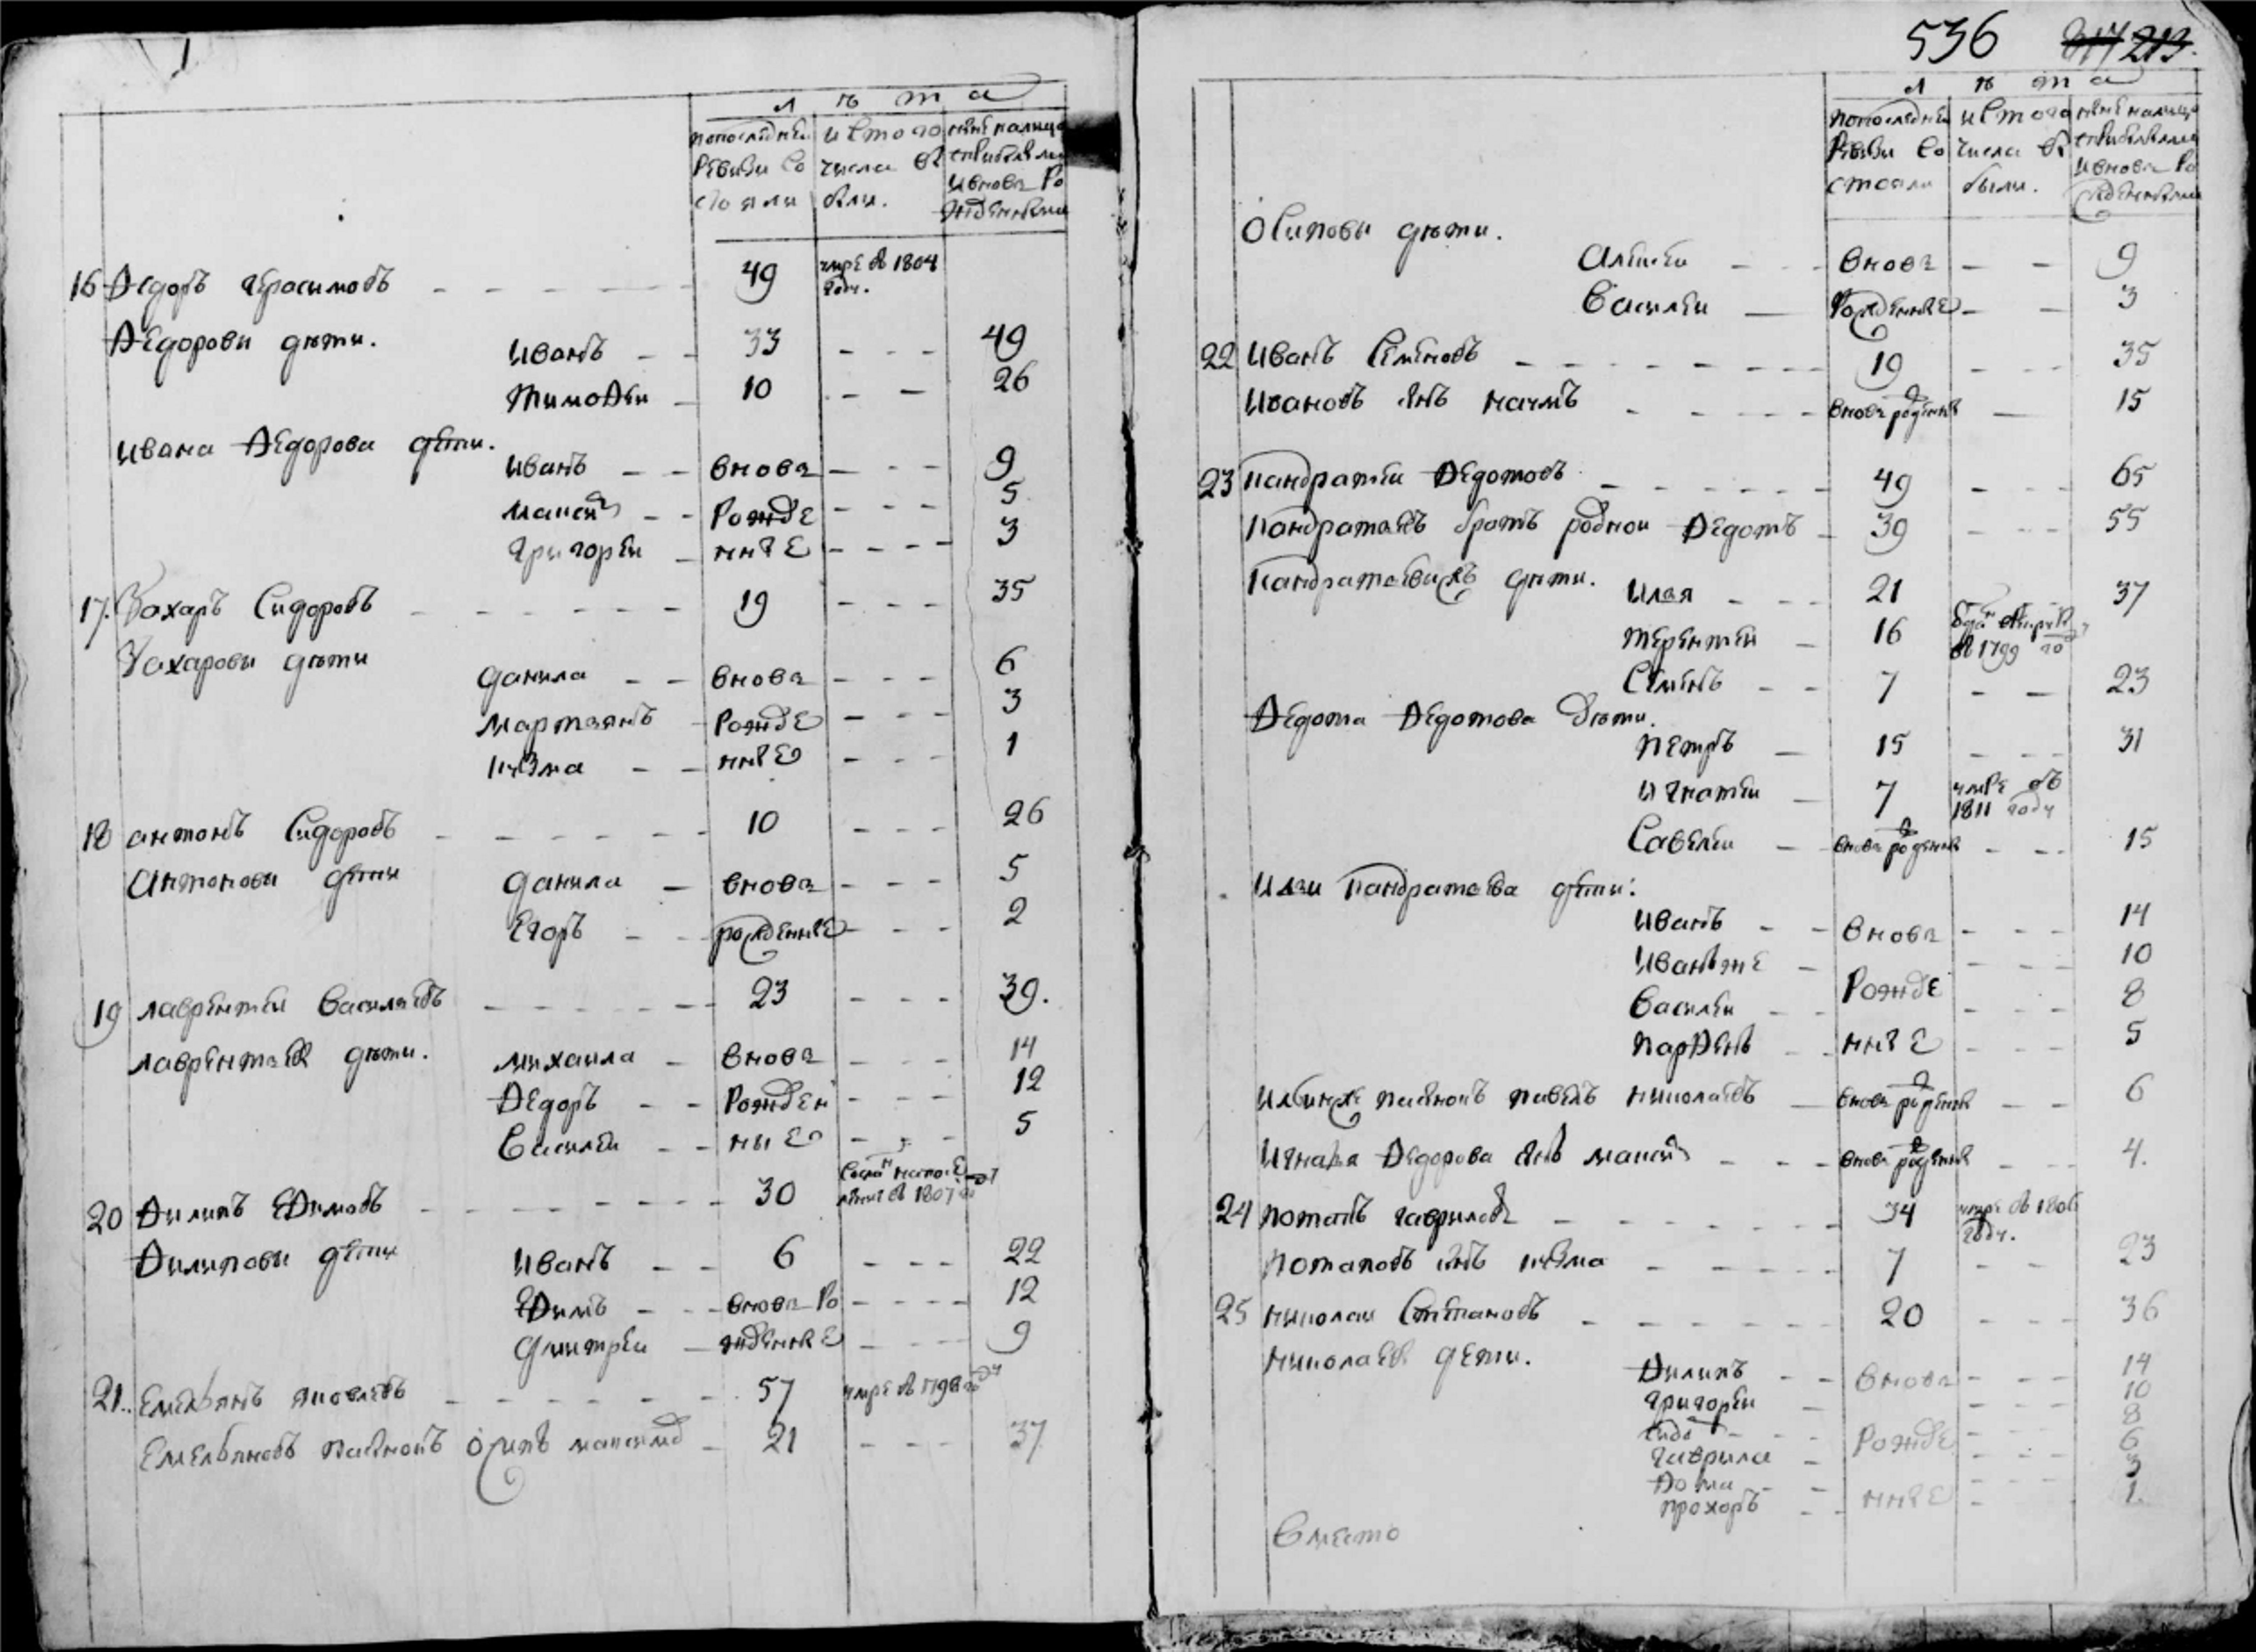 лѣта
по последней и стого ныне налицо
ревизи со числа вы
стояли были.
16 Ѳедоръ Герасимовъ 49 умре въ 1804 году.
Ѳедоровы дѣти. Иванъ 33 49
Тимоѳеи 10 26
Ивана Ѳедорова дети.
Иванъ вновь 9
Максим рожде 5
Григореи нные 3
17. Захаръ Сидоровъ 19 35
Захаровы дѣти
Данила вновь 6
Мартьянъ рожде 3
Кузма нные 1
18 Антонъ Сидоровъ 10 26
Антоновы дети Данила вновь 5
Егоръ рожденные 2
19 Лаврентеи Васильевъ 23 39.
Лаврентьевы дѣти. Михаила вновь 14
Ѳедоръ рожден 12
Василеи ные 5
20 Ѳилипъ Еѳимовъ 30 въ 1807
Ѳилиповы дети Иванъ 6 22
Еѳимъ вновь ро 12
Дмитреи жденные 9
21. Емельянъ Яковлевъ 57 умре въ 1798 году
Емельяновъ пасынокъ Осипъ Максимов 21 37
536 217 213.
лѣта
по последней и стого ныне налицо
ревизи со числа вы
стояли были.
Осиповы дѣти.
Алексеи вновь 9
Василеи рожденные 3
22 Иванъ Семеновъ 19 35
Ивановъ сынъ Наумъ вновь рожденъ 15
23 Кандратеи Ѳедотовъ 49 65
Кандратьевъ братъ родной Ѳедотъ 39 55
Кандратьевы дѣти. Илья 21 37
Терентеи 16 въ 1799 го
Семенъ 7 23
Ѳедота Ѳедотова дѣти.
Петръ 15 31
Игнатеи 7 умре въ 1811 году
Савелеи вновь рожденъ 15
Ильи Кандратьева дети.
Иванъ вновь 14
Иванъ же 10
Василеи рожде 8
Парѳенъ нные 5
Ильинъ пасынокъ Павелъ Николаевъ вновь рожденъ 6
Ѳедорова сынъ Максим вновь рожденъ 4.
24 Потапъ Гавриловъ 34 умре въ 1806 году.
Потаповъ сынъ Кузма 7 23
25 Николаи Степановъ 20 36
Николаевы дети. Ѳилипъ вновь 14
Григореи 10
8
Гаврила рожде 6
Ѳома 3
Прохоръ нные 1.
Вместо